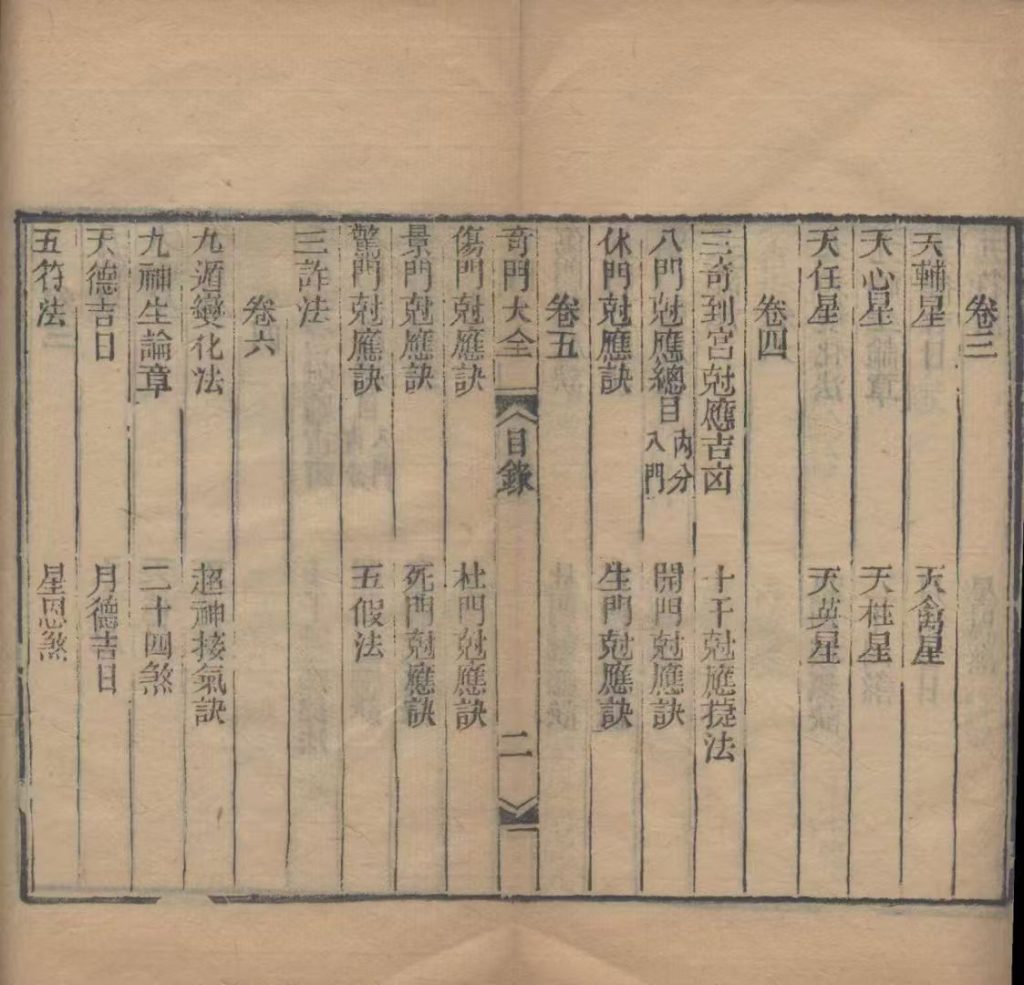 卷三
天輔星　天禽星
天心星　天柱星
天任星　天英星
卷四
三奇到宮尅應吉凶　十干尅應捷法
八門尅應總目 內分八門　開門尅應訣
休門尅應訣　生門尅應訣
卷五
奇門大全　目錄　二
傷門尅應訣　杜門尅應訣
景門尅應訣　死門尅應訣
驚門尅應訣　五假法
三詐法
卷六
九遁變化法　超神接氣訣
九神生論章　二十四煞
天德吉日　月德吉日
五符法　星恩煞